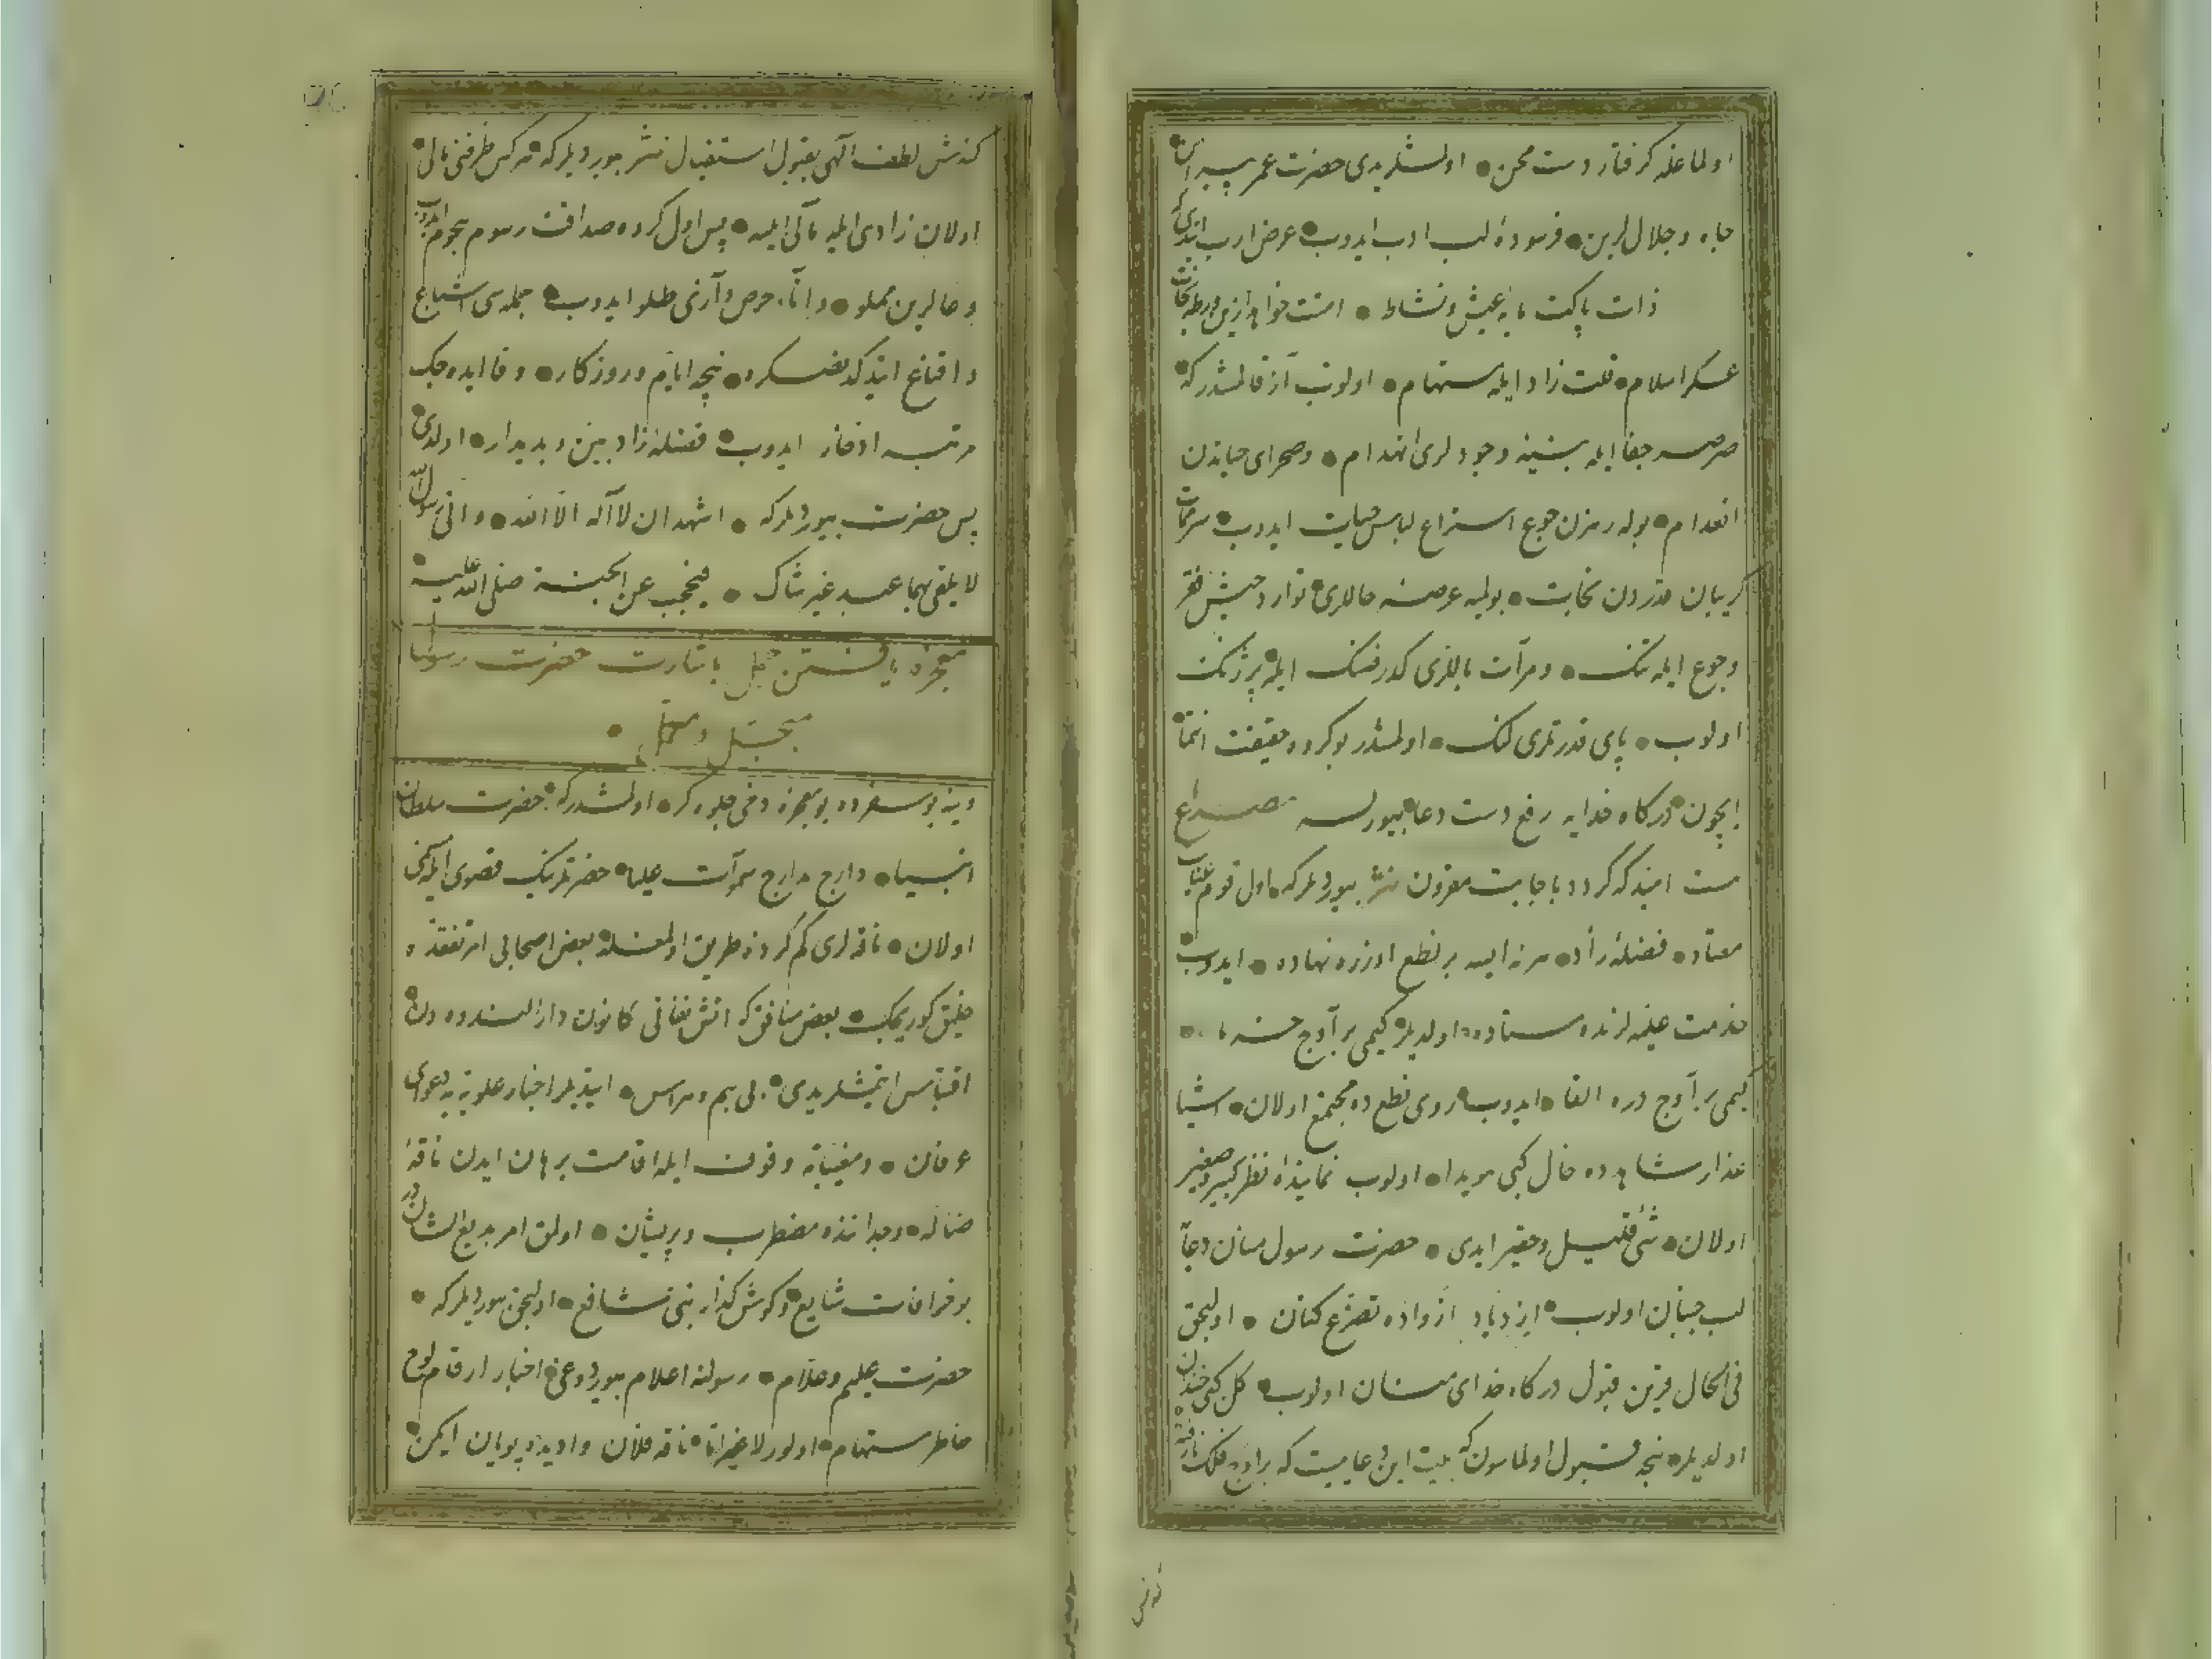 اولماغله گرفتار دست محن اولمشلریدی حضرت عمر
جاه و جلال لرین فرسودهٔ لب ادب ایدوب عرض ادب ایتدی که
ذات پاکت مایهٔ عیش و نشاط امت خواهد ازین ورطه نجات
عسکر اسلام قلت زاد ایله مستهام اولوب آز قالمشدر که
صرصر جفا ایله بنیهٔ وجودلری انهدام وصحرای حیاتدن
انعدام بوله رهزن جوع انتزاع لباس حیات ایدوب
گریبان قدردن نجابت بولیه عرصهٔ حاللری توارد جیش فقر
وجوع ایله تنگ ومرآت باللری کدر ضنک ایله پرژنگ
اولوب پای قدرتلری لنگ اولمشدر بو گروه حقیقت انتما
ایچون درگاه خدایه رفع دست دعا بیورلسه مصراع
هست امید که گردد باجابت مقرون نثر بیوردیلر که اول قوم
معتاد فضلهٔ زاد هر نه ایسه بر نطع اوزره نهاده ایدوب
خدمت علیه لرنده ستاده اولدیلر کیمی بر آوج خرما
کیمی بر آوج دره القا ایدوب روی نطع ده مجتمع اولان اشیا
عذار شاهده خال کبی هویدا اولوب نمایندهٔ نظر کبیر وصغیر
اولان شئ قلیل وحقیر ایدی حضرت رسول منان دعایه
لب جنبان اولوب ازدیاد ازواده تضرع کنان اولیجق
فی الحال قرین قبول درگاه خدای منان اولوب گل کبی خندان
اولدیلر نیجه قبول اولماسون که بیت این دعاییست که بر اوج فلک
کذش لطف الهی بقبول استقبال نثر بیوردیلر که هر کس ظرفنی مالی
اولان زادی ایله مالی ایلیه پس اول گروه صداقت رسوم هجوم ایدوب
وعالرین مملو واناء حرص وآزی طلو ایدوب جمله سی اشباع
واقناع ایتدکدنصکره نیچه ایام وروزگار وفا ایده جک
مرتبه ادخار ایدوب فضلهٔ زاد بین وبدیدار اولدی
پس حضرت بیوردیلر که اشهد ان لا اله الا الله وانی رسول الله
لا یلقی بهما عبد غیر شاک فیحجب عن الجنة صلی الله علیه
معجزه یافتن جمل باشارت حضرت رسول
مبجل ومکمل
وینه بو سفرده بو معجزه دخی جلوه گر اولمشدر که حضرت سلطان
انبیا دارج مدارج سموات علیا حضرتلرینک قصوی ایله
اولان ناقه لری گم کرده طریق اولمغله بعض اصحابی امر تفقده
خلیق گوریجک بعض منافق که آتش نفاقی کانون دار الندوه دن
اقتباس ایتمشلریدی بی بیم وهراس ایتدیلر اخبار علویه یه دعوای
عرفان ومغیباته وقوف ایله اقامت برهان ایدن ناقهٔ
ضاله وجداننده مضطرب وپریشان اولمق امر بدیع الشاندر
بو خرافات شایع وگوش گذار نبی شافع اولیجق بیوردیلر که
حضرت علیم وعلام رسولنه اعلام بیوردوغی اخبار ارقام لوح
خاطر مستهام اولور لا غیر انا ناقه فلان وادیده پویان ایکن